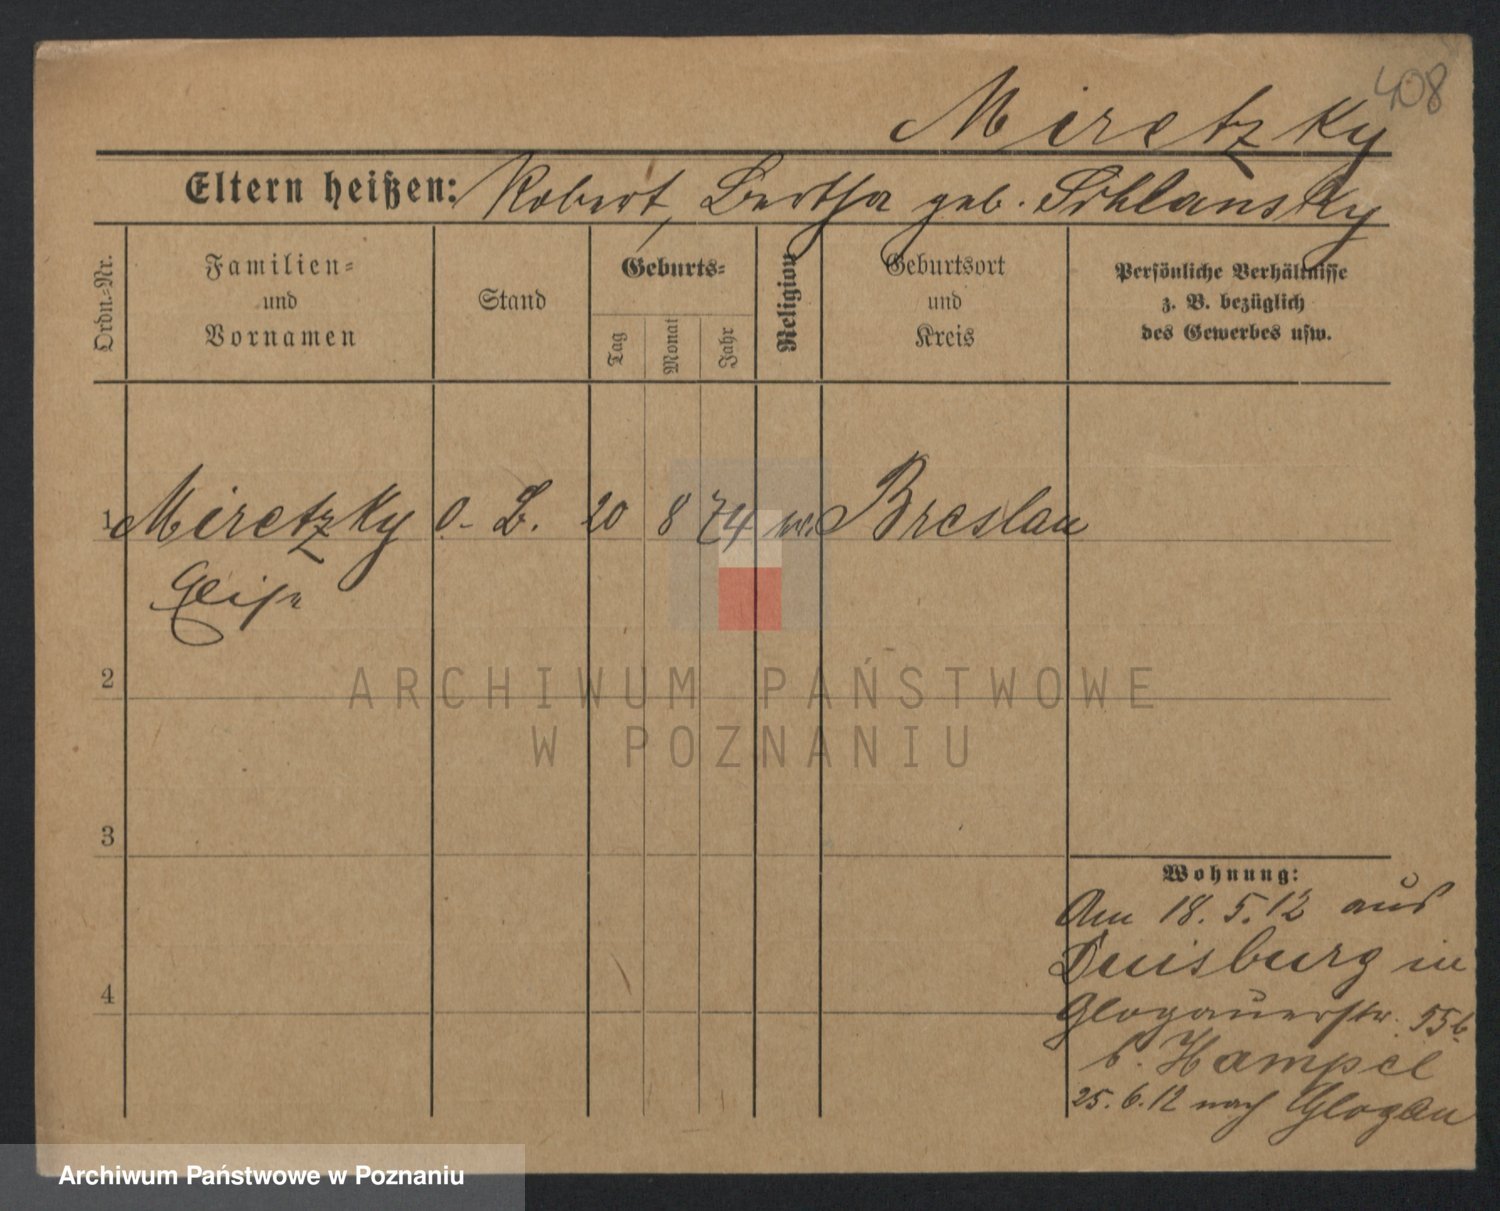 408
Miretzky
Eltern heißen: Robert, Bertha geb. Schlansky
Ordn.-Nr.
Familien-
und
Vornamen
Stand
Geburts-
Tag
Monat
Jahr
Religion
Geburtsort
und
Kreis
Persönliche Verhältnisse
z. B. bezüglich
des Gewerbes usw.
1 Miretzky O. L. 20 8 74 Breslau
2
3
4
Wohnung:
Am 18.5.12 aus
Duisburg in
Glogauerstr. 55b.
b. Hampel
25.6.12 nach Glogau
ARCHIWUM PAŃSTWOWE
W POZNANIU
Archiwum Państwowe w Poznaniu